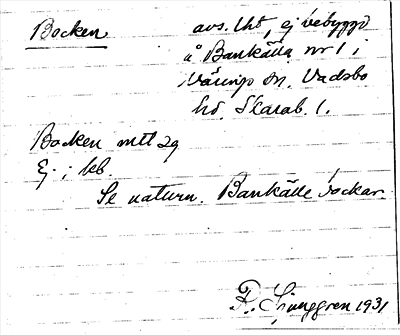 Bocken avs. lht, ej bebyggd
å Bankälla nr 1 i
Väringe sn. Vadsbo
hd. Skarab. l.
Bocken mtt 29
Ej i kb.
Se naturn. Bankälle bockar.
F. Ljunggren 1931